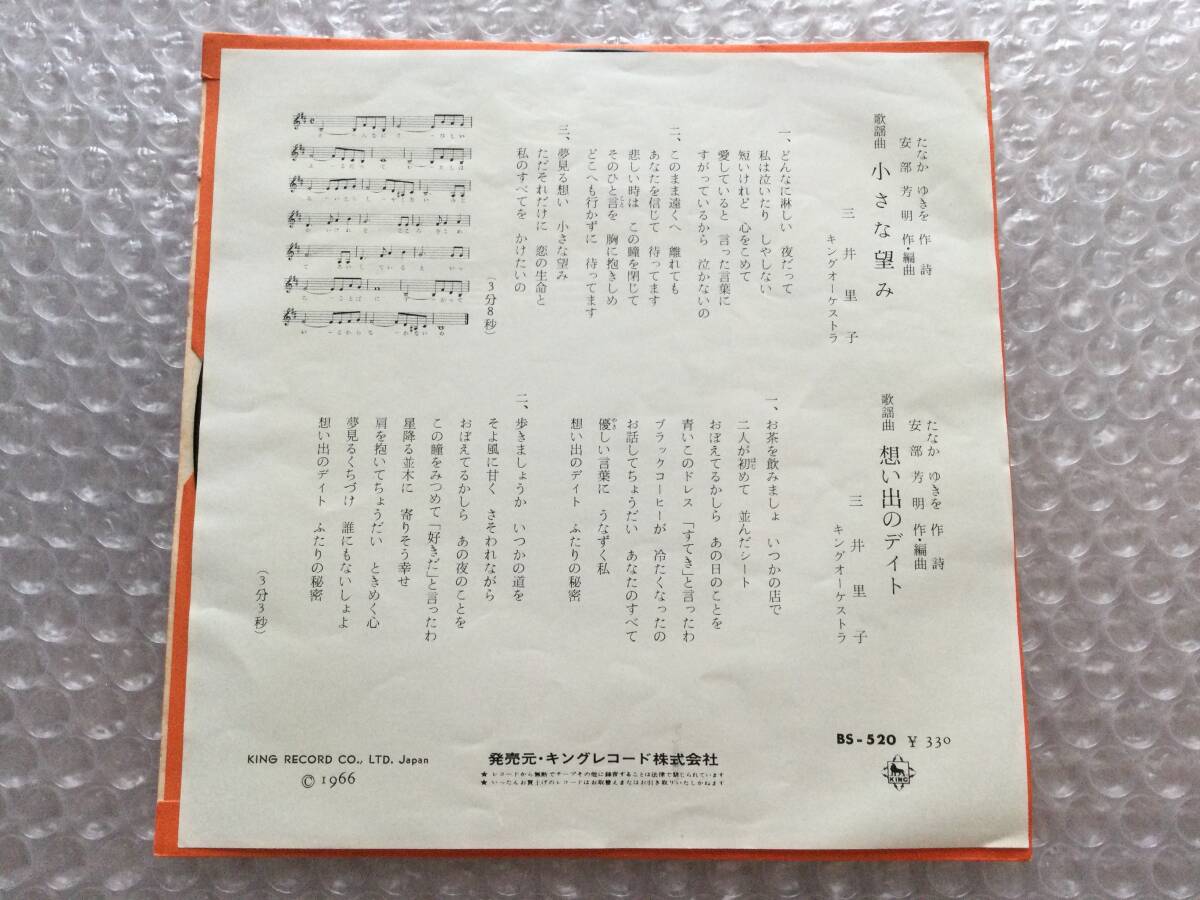 たなか ゆきを 作 詩
安部 芳明 作・編曲
歌謡曲 小さな望み
三井里子
キングオーケストラ
一、どんなに淋しい 夜だって
私は泣いたり しやしない
短いけれど 心をこめて
愛していると 言った言葉に
すがっているから 泣かないの
二、このまま遠くへ 離れても
あなたを信じて 待ってます
悲しい時は この瞳を閉じて
そのひと言を 胸に抱きしめ
どこへも行かずに 待ってます
三、夢見る想い 小さな望み
ただそれだけに 恋の生命と
私のすべてを かけたいの
(3分8秒)
たなか ゆきを 作 詩
安部 芳明 作・編曲
歌謡曲 想い出のデイト
三井里子
キングオーケストラ
一、お茶を飲みましょ いつかの店で
二人が初めて 並んだシート
おぼえてるかしら あの日のことを
青いこのドレス 「すてき」と言ったわ
ブラックコーヒーが 冷たくなったの
お話してちょうだい あなたのすべて
優しい言葉に うなずく私
想い出のデイト ふたりの秘密
二、歩きましょうか いつかの道を
そよ風に甘く さそわれながら
おぼえてるかしら あの夜のことを
この瞳をみつめて「好きだ」と言ったわ
星降る並木に 寄りそう幸せ
肩を抱いてちょうだい ときめく心
夢見るくちづけ 誰にもないしょよ
想い出のデイト ふたりの秘密
(3分3秒)
BS-520 ¥330
KING
発売元・キングレコード株式会社
★レコードから無断でテープその他に録音することは法律で禁じられています
★いったんお買上げのレコードはお取替えまたはお引き取りいたしかねます
KING RECORD CO., LTD. Japan
© 1966